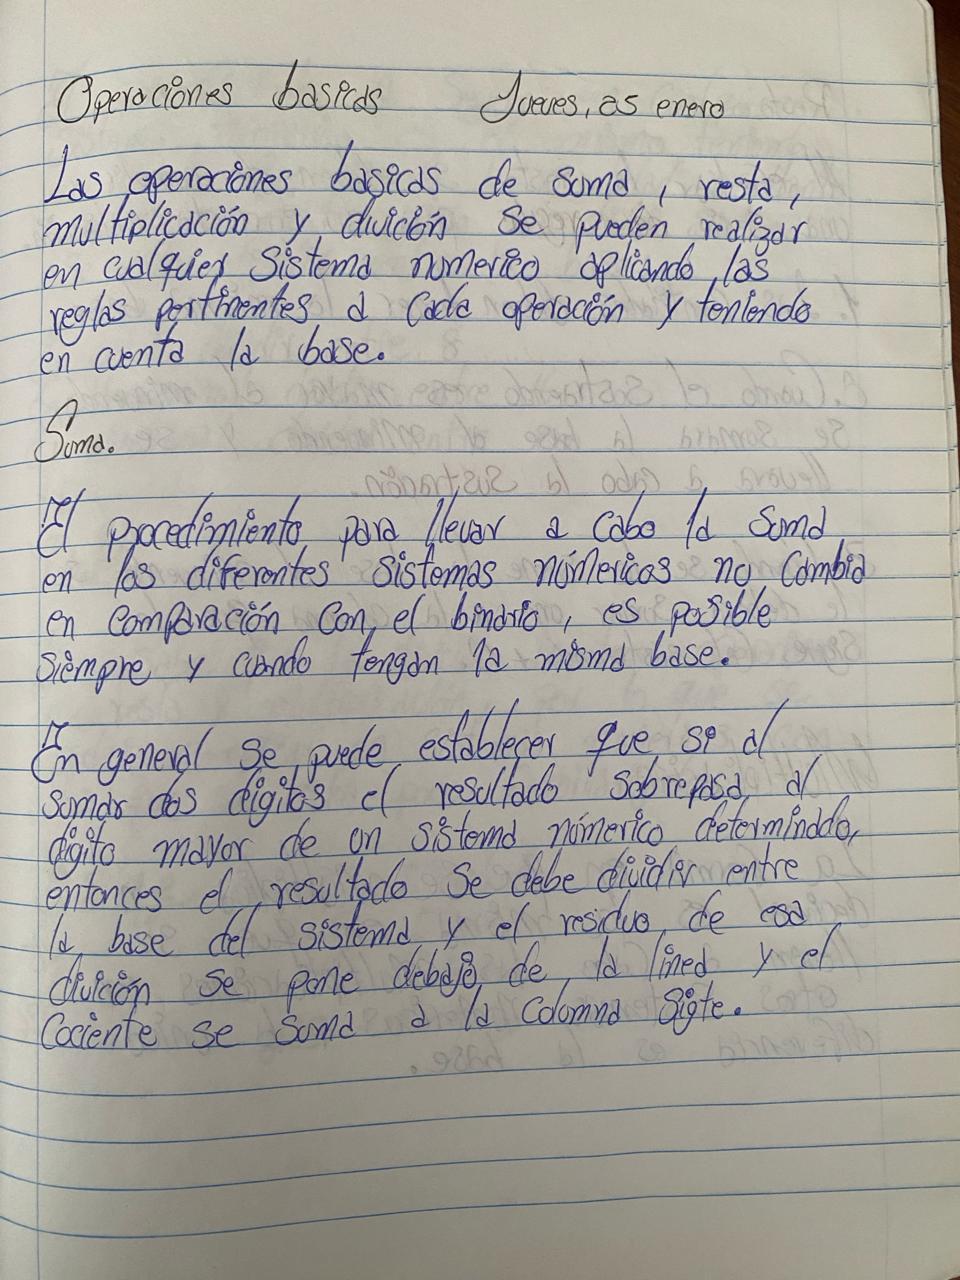 Operaciones basicas Jueves, 25 enero
Las operaciones basicas de suma, resta,
multiplicación y divición se pueden realizar
en cualquier sistema numerico aplicando las
reglas pertinentes a cada operación y teniendo
en cuenta la base.
Suma.
El procedimiento para llevar a cabo la suma
en los diferentes sistemas númericos no cambia
en comparación con el binario, es posible
siempre y cuando tengan la misma base.
En general se puede establecer que si al
sumar dos dígitos el resultado sobrepasa al
dígito mayor de un sistema númerico determinado,
entonces el resultado se debe dividir entre
la base del sistema y el residuo de esa
divición se pone debajo de la linea y el
cociente se suma a la columna sigte.